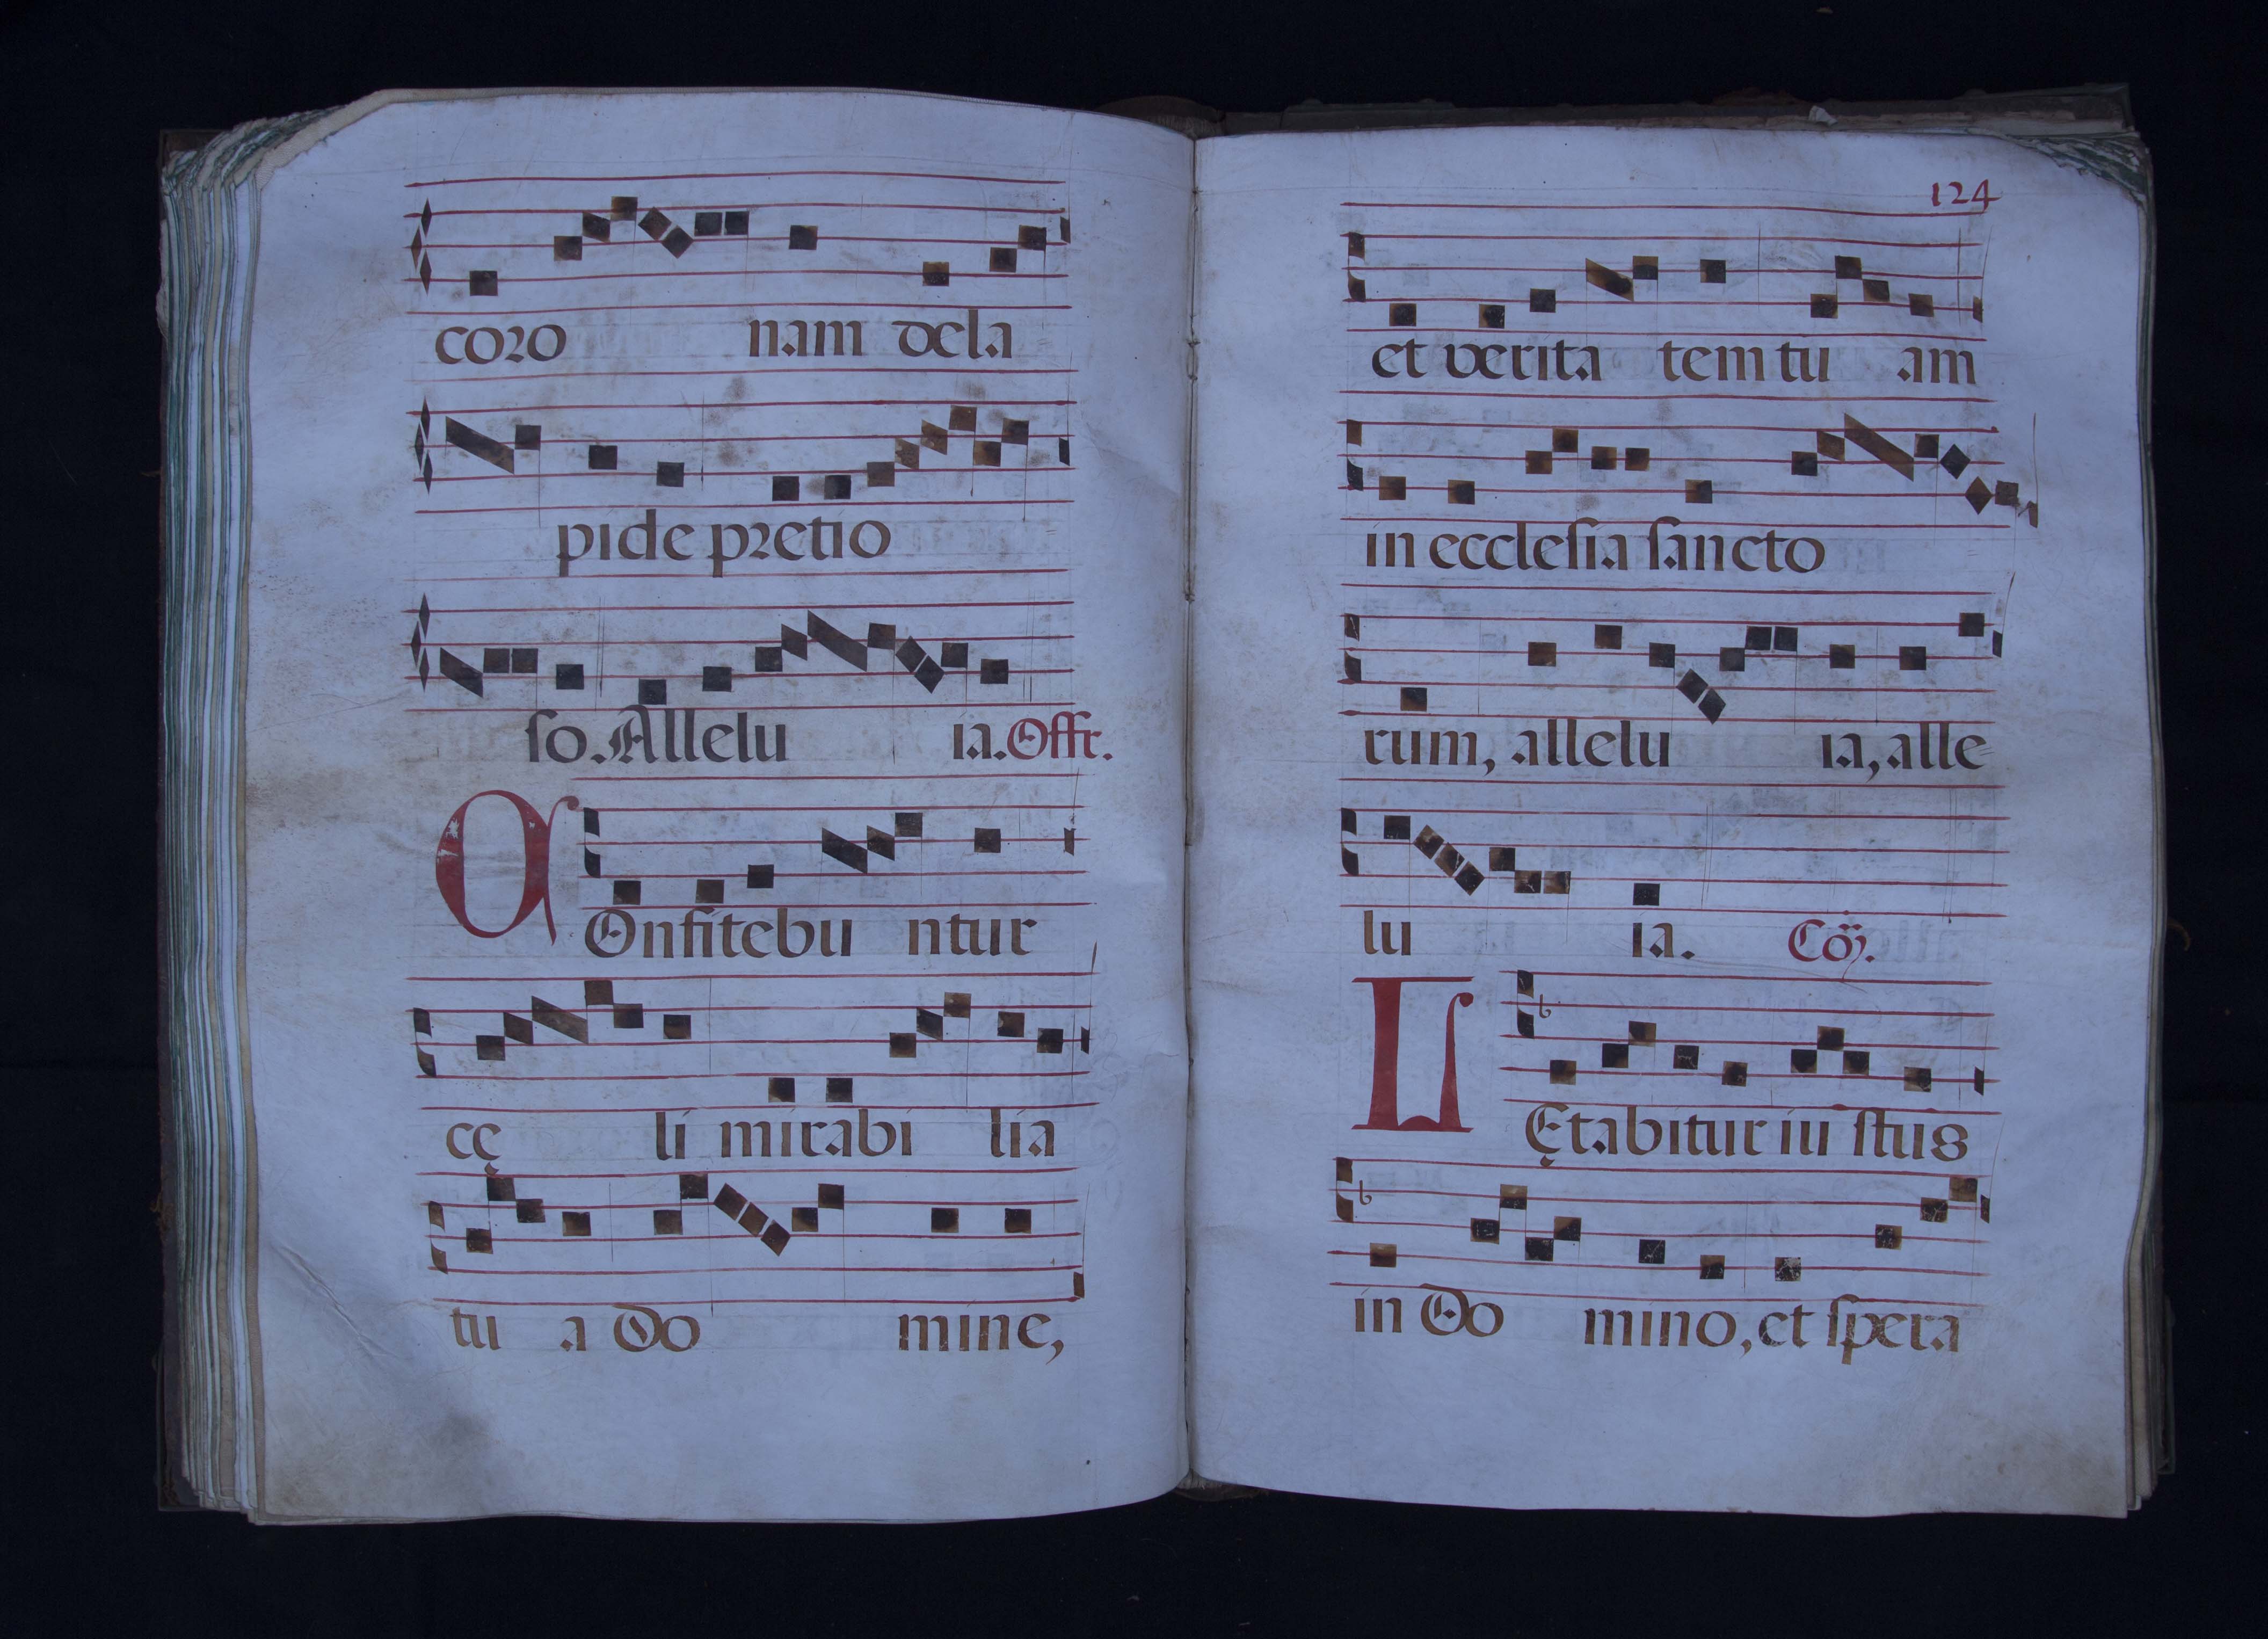 coro nam de la
pide pretio
so. Allelu ia. Offr.
COnfitebu ntur
cę li mirabi lia
tu a Do mine,
124
et verita tem tu am
in ecclesia sancto
rum, allelu ia, alle
lu ia. Cō.
LĘtabitur iu stus
in Do mino, et spera